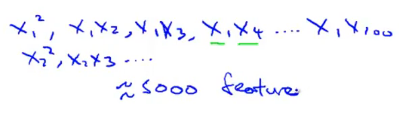 x₁², x₁x₂, x₁x₃, x₁x₄ .... x₁x₁₀₀
x₂², x₂x₃ ....
≈ 5000 feature